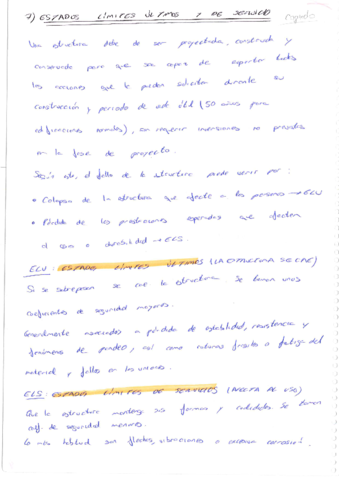 7) ESTADOS LÍMITES ÚLTIMOS Y DE SERVICIO
Una estructura debe de ser proyectada, construida y
conservada para que sea capaz de soportar todas
las acciones que le puedan solicitar durante su
construcción y periodo de vida útil (50 años para
edificaciones normales), sin requerir inversiones no previstas
en la fase de proyecto.
Según esto, el fallo de la estructura puede venir por:
• Colapso de la estructura que afecte a las personas → ELU
• Pérdida de las prestaciones esperadas que afecten
al uso o durabilidad → ELS.
ELU: ESTADOS LÍMITES ÚLTIMOS (LA ESTRUCTURA SE CAE)
Si se sobrepasan se cae la estructura. Se toman unos
coeficientes de seguridad mayores.
Generalmente asociados a pérdida de estabilidad, resistencia y
fenómenos de pandeo, así como roturas frágiles o fatiga del
material y fallos en las uniones.
ELS ESTADOS LÍMITES DE SERVICIO (AFECTA AL USO)
Que la estructura mantenga sus formas y cualidades. Se toman
coef. de seguridad menores.
Lo más habitual son flechas, vibraciones o excesiva corrosión.